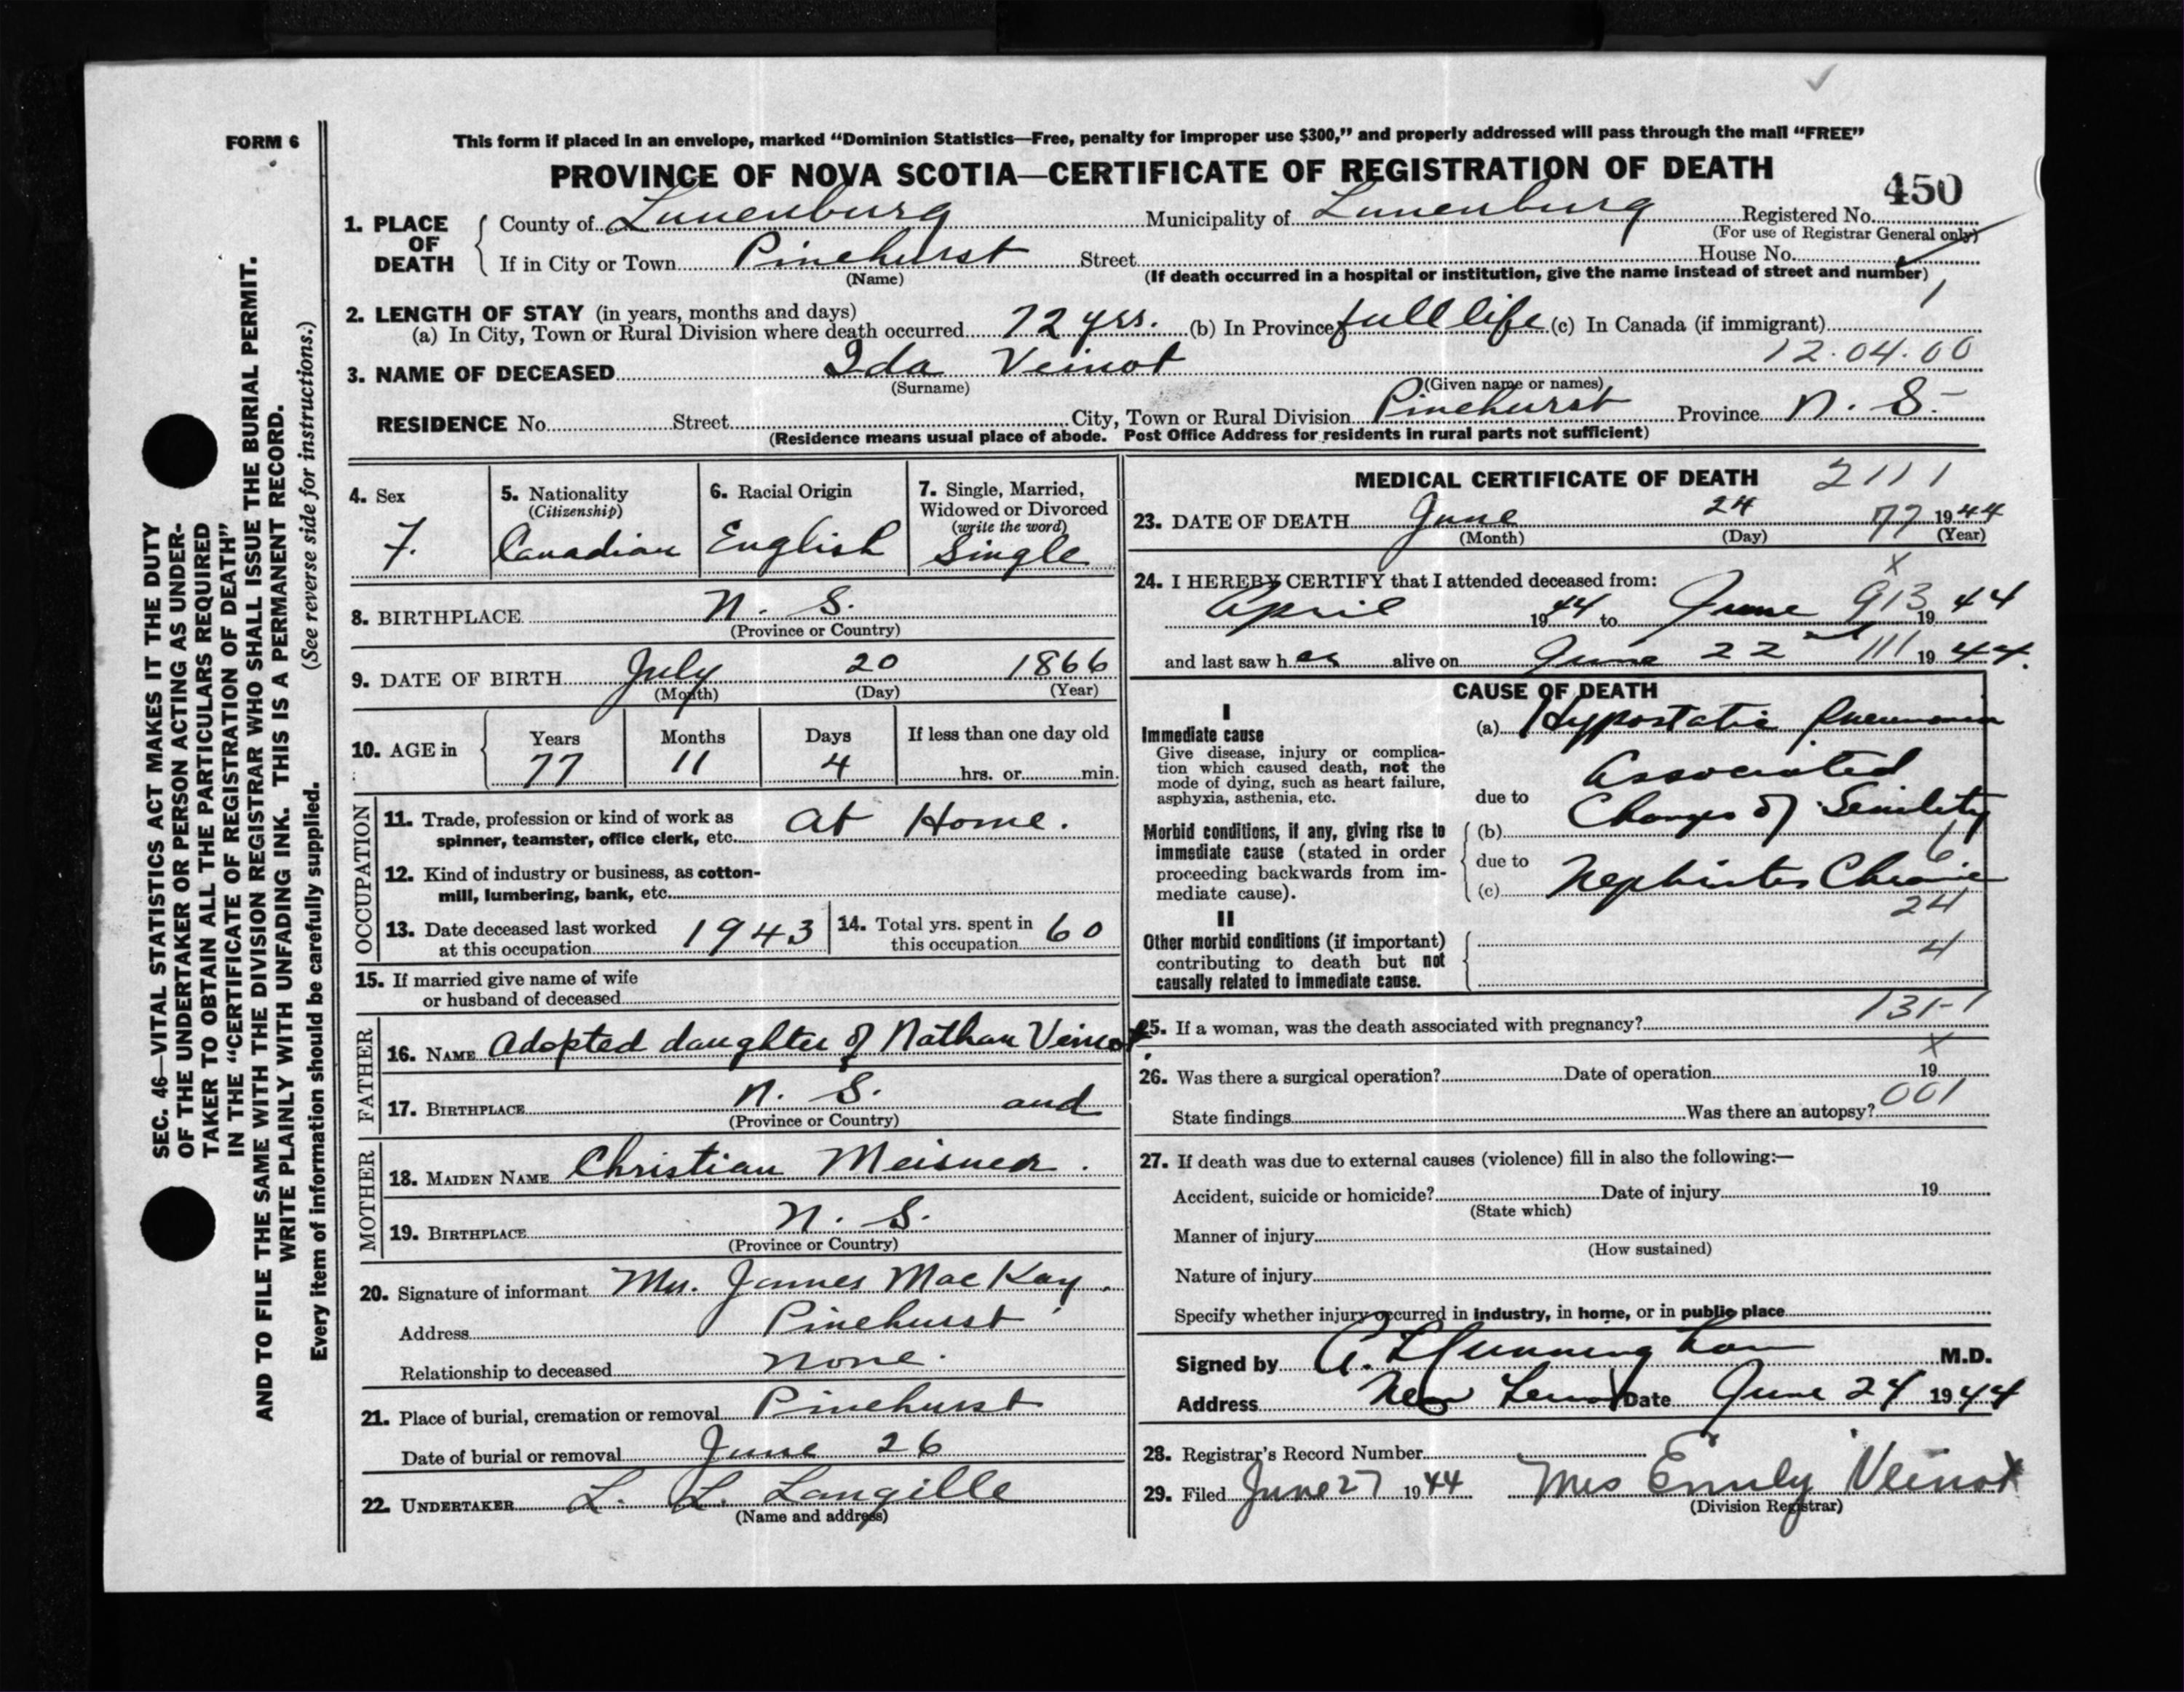 FORM 6
This form if placed in an envelope, marked “Dominion Statistics—Free, penalty for improper use $300,” and properly addressed will pass through the mail “FREE”
PROVINCE OF NOVA SCOTIA—CERTIFICATE OF REGISTRATION OF DEATH
450
1. PLACE OF DEATH
County of Lunenburg Municipality of Lunenburg Registered No.
(For use of Registrar General only)
If in City or Town Pinehurst Street House No.
(Name) (If death occurred in a hospital or institution, give the name instead of street and number)
2. LENGTH OF STAY (in years, months and days)
(a) In City, Town or Rural Division where death occurred 72 yrs. (b) In Province full life (c) In Canada (if immigrant)
12.04.00
3. NAME OF DECEASED Ida Veinot
(Surname) (Given name or names)
RESIDENCE No. Street City, Town or Rural Division Pinehurst Province N. S.
(Residence means usual place of abode. Post Office Address for residents in rural parts not sufficient)
4. Sex
F.
5. Nationality
(Citizenship)
Canadian
6. Racial Origin
English
7. Single, Married,
Widowed or Divorced
(write the word)
Single
8. BIRTHPLACE N. S.
(Province or Country)
9. DATE OF BIRTH July 20 1866
(Month) (Day) (Year)
10. AGE in
Years Months Days If less than one day old
77 11 4 hrs. or min.
OCCUPATION
11. Trade, profession or kind of work as
spinner, teamster, office clerk, etc. at Home.
12. Kind of industry or business, as cotton-
mill, lumbering, bank, etc.
13. Date deceased last worked
at this occupation 1943
14. Total yrs. spent in
this occupation 60
15. If married give name of wife
or husband of deceased
FATHER
16. NAME Adopted daughter of Nathan Veinot
17. BIRTHPLACE N. S. and
(Province or Country)
MOTHER
18. MAIDEN NAME Christian Meisner.
19. BIRTHPLACE N. S.
(Province or Country)
20. Signature of informant Mrs. James MacKay.
Address Pinehurst
Relationship to deceased none.
21. Place of burial, cremation or removal Pinehurst
Date of burial or removal June 26
22. UNDERTAKER L. L. Langille
(Name and address)
MEDICAL CERTIFICATE OF DEATH 2111
23. DATE OF DEATH June 24 77 1944
(Month) (Day) (Year)
x
24. I HEREBY CERTIFY that I attended deceased from:
April 1944 to June 913 1944
and last saw her alive on June 22nd 111 1944.
CAUSE OF DEATH
I
Immediate cause
Give disease, injury or complica-
tion which caused death, not the
mode of dying, such as heart failure,
asphyxia, asthenia, etc.
Morbid conditions, if any, giving rise to
immediate cause (stated in order
proceeding backwards from im-
mediate cause).
II
Other morbid conditions (if important)
contributing to death but not
causally related to immediate cause.
(a) Hypostatic pneumonia
Associated
due to
(b) Changes of Senility
due to 6
(c) Nephritis Chronic
24
4
131-1
25. If a woman, was the death associated with pregnancy?
x
26. Was there a surgical operation? Date of operation 19
001
State findings Was there an autopsy?
27. If death was due to external causes (violence) fill in also the following:—
Accident, suicide or homicide? Date of injury 19
(State which)
Manner of injury
(How sustained)
Nature of injury
Specify whether injury occurred in industry, in home, or in public place
Signed by M.D.
Address New Date June 24 1944
28. Registrar's Record Number
29. Filed June 27 1944 Mrs Emily Veinot
(Division Registrar)
SEC. 46—VITAL STATISTICS ACT MAKES IT THE DUTY
OF THE UNDERTAKER OR PERSON ACTING AS UNDER-
TAKER TO OBTAIN ALL THE PARTICULARS REQUIRED
IN THE “CERTIFICATE OF REGISTRATION OF DEATH”
AND TO FILE THE SAME WITH THE DIVISION REGISTRAR WHO SHALL ISSUE THE BURIAL PERMIT.
WRITE PLAINLY WITH UNFADING INK. THIS IS A PERMANENT RECORD.
Every item of information should be carefully supplied. (See reverse side for instructions.)